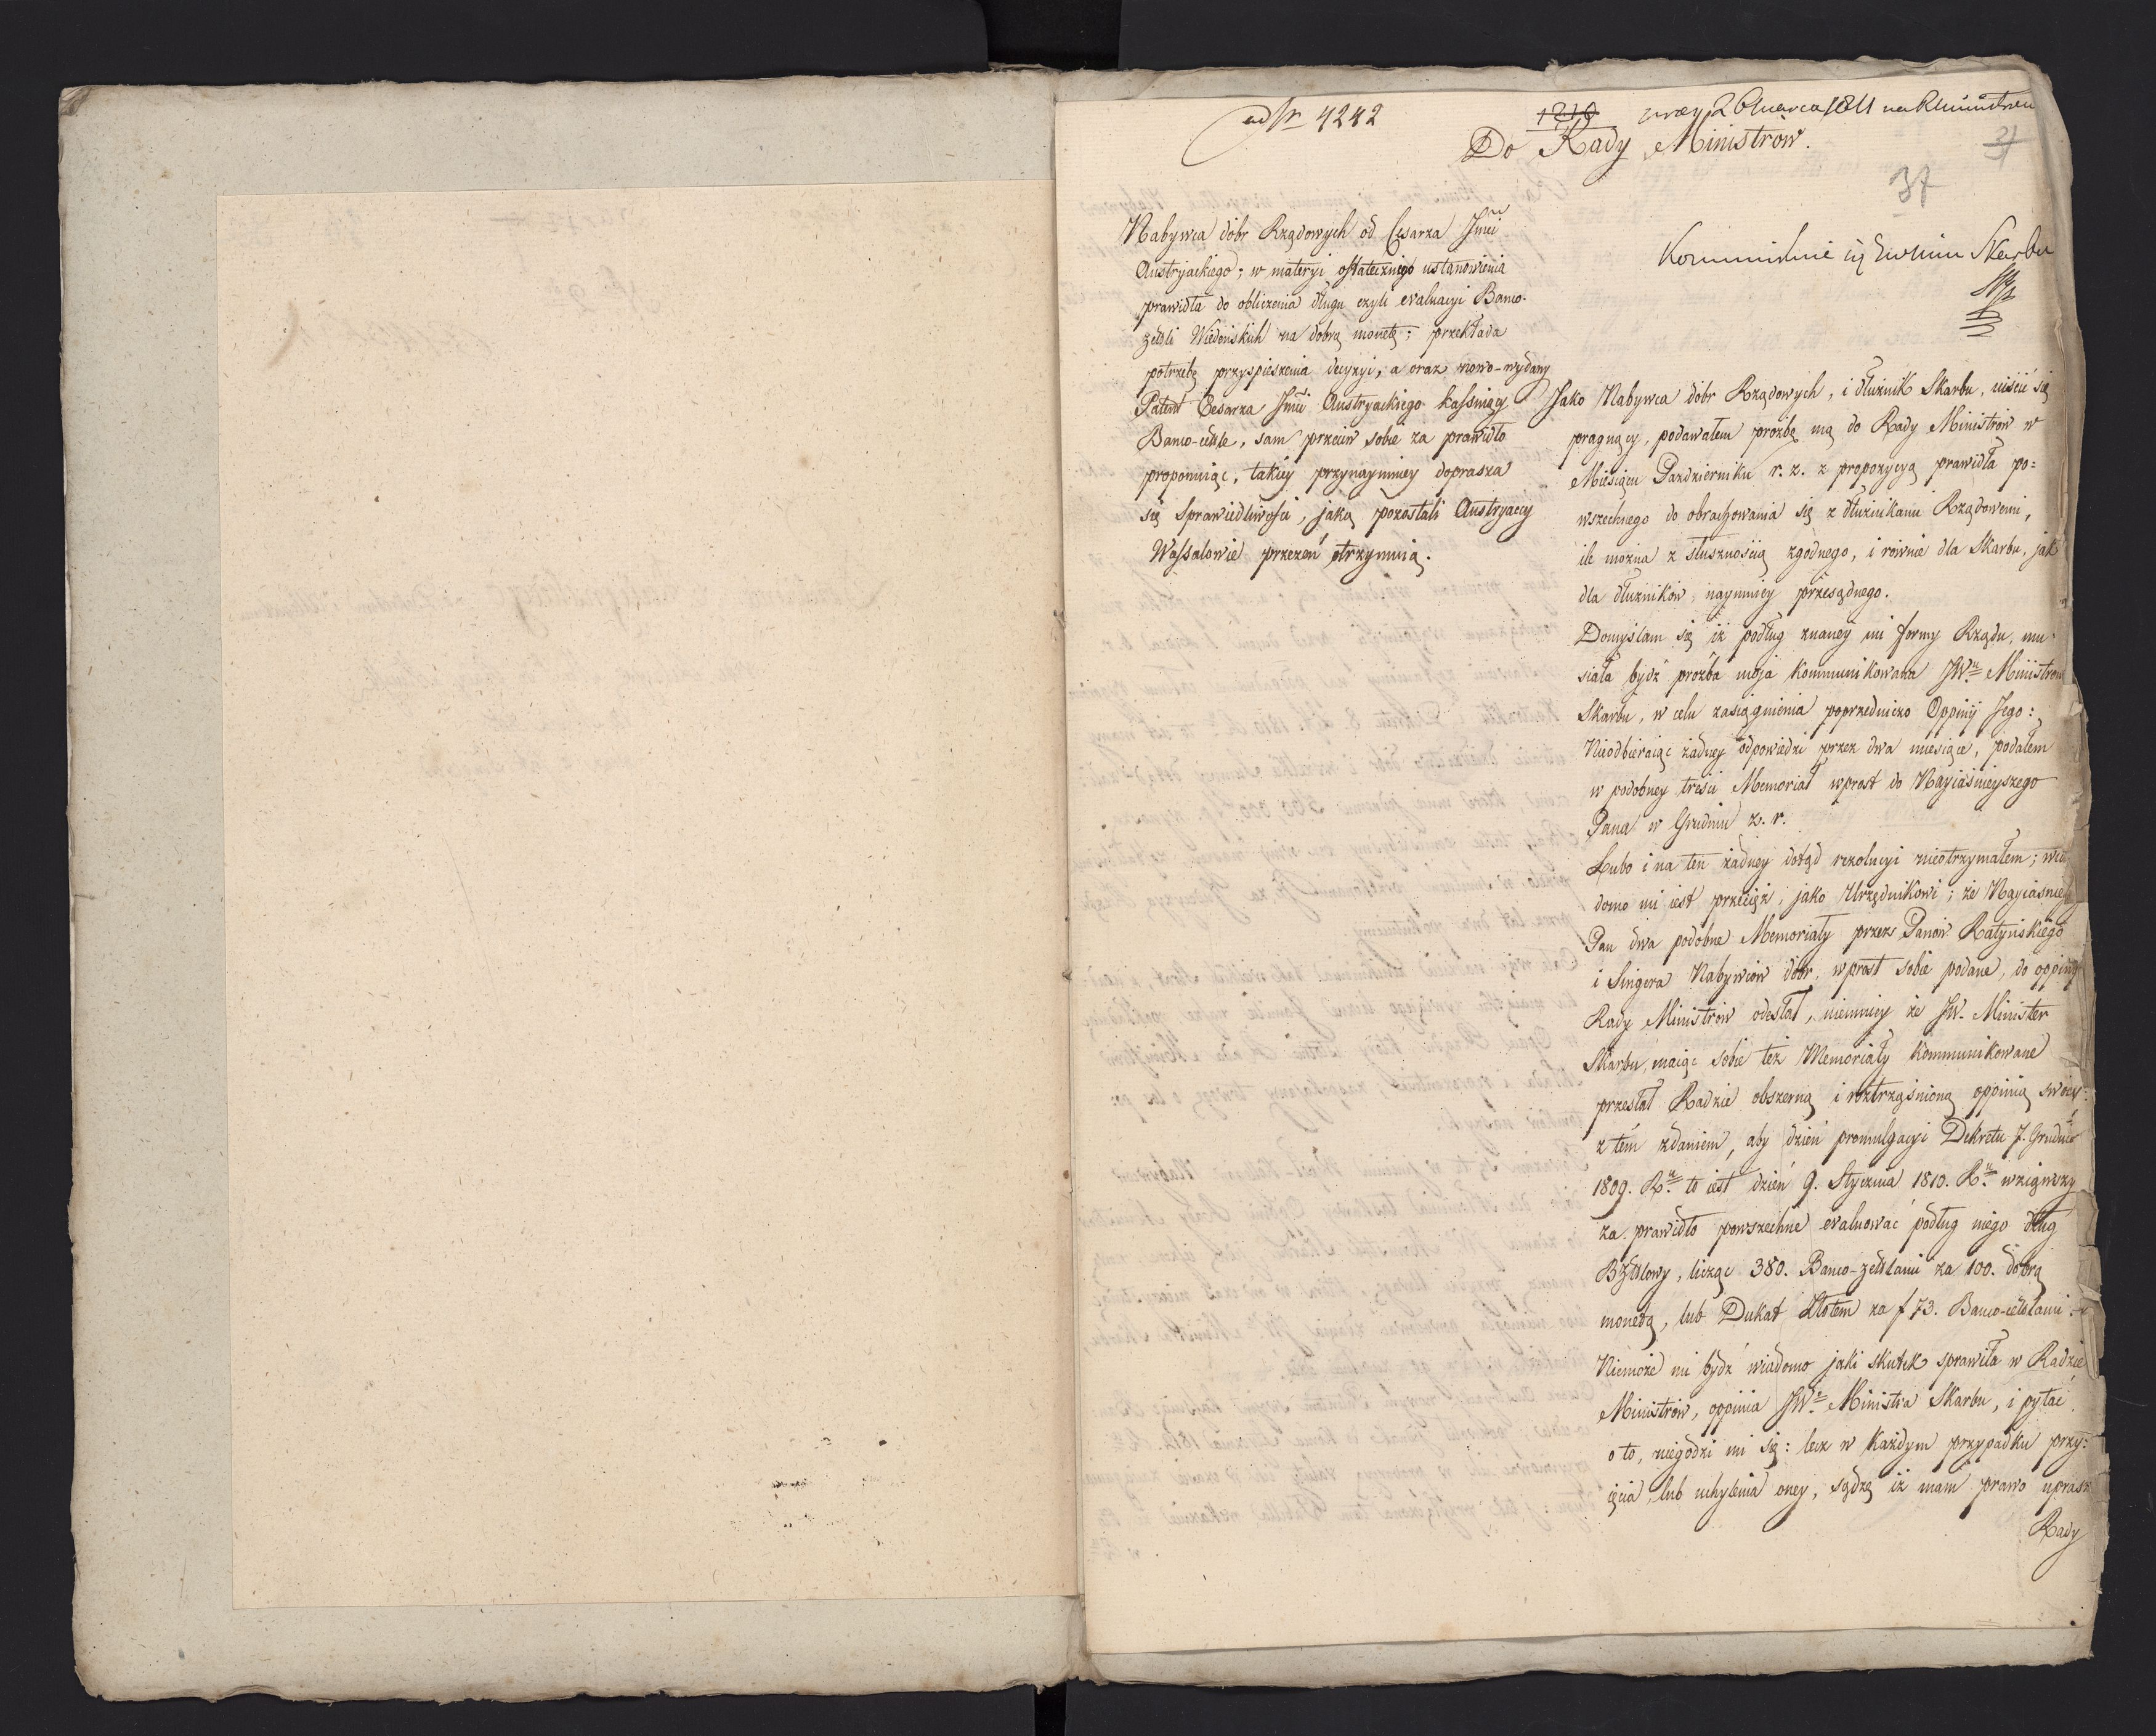 ad Nr 4242
1210
Do Rady Ministrów.
37
Kommunikuie się Skarbu
Nabywca dóbr Rządowych od Cesarza Jmci
Austryackiego; w materyi ostatecznego ustanowienia
prawidła do obliczenia długu czyli evaluacyi Banco-
zettli Wiedeńskich na dobrą monetę; przekłada
potrzebę przyspieszenia decyzyi, a oraz nowo-wydany
Patent Cesarza Jmci Austryackiego kassuiący
Banco-cetle, sam przeciw sobie za prawidło
proponuiąc, takiey przynaymniey doprasza
się Sprawiedliwości, jaką pozostali Austryaccy
Wassalowie przezeń otrzymuią.
Jako Nabywca dóbr Rządowych, i dłużnik Skarbu, uiścić się
pragnący, podawałem prozbę mą do Rady Ministrów w
Miesiącu Pazdzierniku r. z. z propozycyą prawidła po=
wszechnego do obrachowania się z dłużnikami Rządowemi,
ile można z słusznością zgodnego, i rownie dla Skarbu, jak
dla dłużników, naymniey przesądnego.
Domyślam się iż podług znaney mi formy Rządu, mu=
siała bydź prozba moja kommunikowana JWu Ministrowi
Skarbu, w celu zasiągnienia poprzedniczo Oppinij Jego:
Nieodbieraiąc żadney odpowiedzi przez dwa miesiące, podałem
w podobney treści Memoriał wprost do Nayiaśnieyszego
Pana w Grudniu z. r.
Lubo i na ten żadney dotąd rezolucyi nieotrzymałem; wia
domo mi iest przecięż, jako Urzędnikowi; że Nayiaśniey
Pan dwa podobne Memoriały przez Panów Ratyńskiego
i Singera Nabywców dóbr, wprost sobie podane, do oppinij
Rady Ministrów odesłał, niemniey że JW. Minister
Skarbu, maiąc sobie też Memoriały kommunikowane
przesłał Radzie obszerną i roztrząśnioną oppinią swoię
z tém zdaniem, aby dzień promulgacyi Dekretu 7. Grudnia
1809. Ru to iest dzień 9. Stycznia 1810. Ru wziąwszy
za prawidło powszechne evaluować podług niego dług
BZttlowy, licząc 380. Banco-zettlami za 100. dobrą
monetą, lub Dukat Złotem za f 73. Banco-cetlami.
Niemoże mi bydź wiadomo jaki skutek sprawiła w Radzie
Ministrów, oppinia JWo Ministra Skarbu, i pytać
o to, niegodzi mi się: lecz w każdym przypadku przy=
ięcia, lub uchylenia oney, sądzę iż mam prawo uprasz
Rady